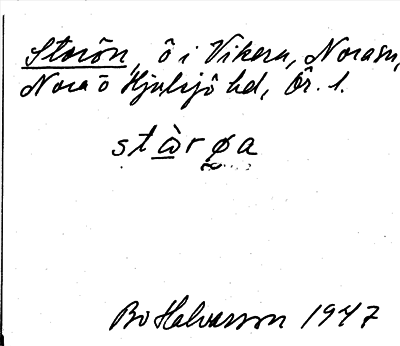 Storön, ö i Vikern, Norasn,
Nora o Hjulsjö hd, Ör. l.
stὼrøa
Bo Halvarsson 1947